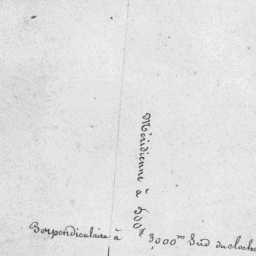 Méridienne à 500m
Perpendiculaire à 3,000m Sud du cloche